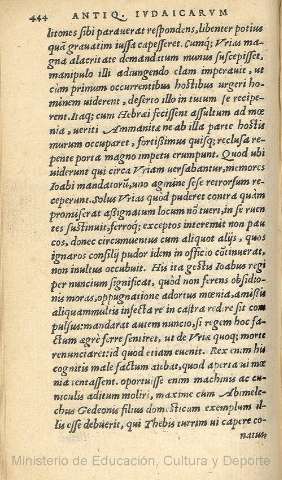 444 ANTIQ. IVDAICARVM
litones sibi parauerat respondens, libenter potius
quā grauatim iussa capesseret. Cumq́; Vrias ma-
gna alacritate demanditum munus suscepisset,
manipulo illi adiungendo clam imperauit, ut
cùm primum occurrentibus hostibus urgeri ho-
minem uiderent, deserto illo in tutum se recipe-
rent. Itaq; cum Hebræi fecissent assultum ad mœ
nia, ueriti Ammanitæ ne ab illa parte hostis
murum occuparet, fortissimus quisq; reclusa re-
pente porta magno impetu erumpunt. Quod ubi
uiderunt qui circa Vriam uersabantur, memores
Ioabi mandatorū, uno agmine sese retrorsum re-
ceperunt. Solus Vrias quod puderet contra quàm
promiserat assignatum locum nō tueri, in se ruen
tes sustinuit, ferroq́; exceptos interemit non pau
cos, donec circumuentus cum aliquot alijs, quos
ignaros consilij pudor idem in officio cōtinuerat,
non inultus occubuit. His ita gestis Ioabus regi
per nuncium significat, quòd non ferens obsidio-
nis moras, oppugnatione adortus mœnia, amissis
aliquammultis infecta re in castra redire sit com
pulsus: mandarat autem nuncio, si regem hoc fa-
ctum ægrè ferre sentiret, ut de Vriæ quoq; morte
renunciaret: id quod etiam euenit. Rex enim his
cognitis male factum aiebat, quod aperta ui mœ
nia tentassent. oportuisse enim machinis ac cu-
niculis aditum moliri, maxime cum Abimele-
chus Gedeonis filius domesticum exemplum il-
lis esse debuerit, qui Thebis turrim ui capere co-
natus
Ministerio de Educación, Cultura y Deporte